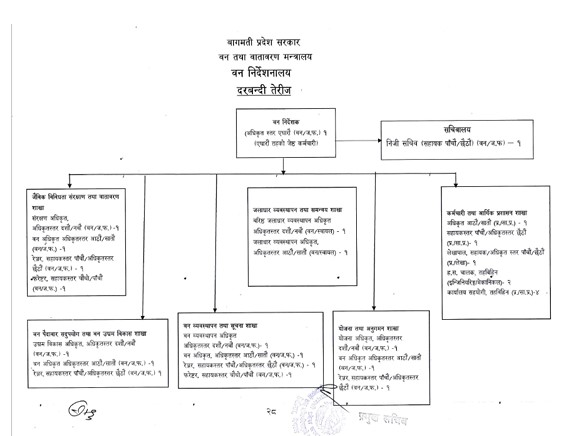 बागमती प्रदेश सरकार
वन तथा वातावरण मन्त्रालय
वन निर्देशनालय
दरबन्दी तेरीज
वन निर्देशक
(अधिकृत स्तर एघारौं (वन/ज.फ.) १
(एघारौं तहको जेष्ठ कर्मचारी)
सचिवालय
निजी सचिव (सहायक पाँचौं/छैठौं) (वन/ज.फ) – १
जैविक विविधता संरक्षण तथा वातावरण
शाखा
संरक्षण अधिकृत,
अधिकृतस्तर दशौं/नवौं (वन/ज.फ.)-१
वन अधिकृत अधिकृतस्तर आठौं/सातौं
(वन/ज.फ.) -१
रेञ्जर, सहायकस्तर पाँचौं/अधिकृतस्तर
छैठौं (वन/ज.फ.) - १
फरेष्टर, सहायकस्तर चौथो/पाँचौं
(वन/ज.फ.) -१
जलाधार व्यवस्थापन तथा समन्वय शाखा
वरिष्ठ जलाधार व्यवस्थापन अधिकृत
अधिकृतस्तर दशौं/नवौं (वन/स्वायल) - १
जलाधार व्यवस्थापन अधिकृत,
अधिकृतस्तर आठौं/सातौं (वन/स्वायल) -१
कर्मचारी तथा आर्थिक प्रशासन शाखा
अधिकृत आठौं/सातौं (प्र./सा.प्र.) - १
सहायकस्तर पाँचौं/अधिकृतस्तर छैठौं
(प्र./सा.प्र.)- १
लेखापाल, सहायक/अधिकृत स्तर पाँचौं/छैठौं
(प्र./लेखा)- १
ह.स. चालक, तहविहिन
(इन्जिनियरिङ/मेकानिकल)- २
कार्यालय सहयोगी, तहविहिन (प्र./सा.प्र.)-४
वन पैदावार सदुपयोग तथा वन उद्यम विकास शाखा
उद्यम विकास अधिकृत, अधिकृतस्तर दशौं/नवौं
(वन/ज.फ.) -१
वन अधिकृत अधिकृतस्तर आठौं/सातौं (वन/ज.फ.) -१
रेञ्जर, सहायकस्तर पाँचौं/अधिकृतस्तर छैठौं (वन/ज.फ.) १
वन व्यवस्थापन तथा सूचना शाखा
वन व्यवस्थापन अधिकृत
अधिकृतस्तर दशौं/नवौं (वन/ज.फ.)- १
वन अधिकृत, अधिकृतस्तर आठौं/सातौं (वन/ज.फ.) -१
रेञ्जर, सहायकस्तर पाँचौं/अधिकृतस्तर छैठौं (वन/ज.फ.) - १
फरेष्टर, सहायकस्तर चौथो/पाँचौं (वन/ज.फ.) -१
योजना तथा अनुगमन शाखा
योजना अधिकृत, अधिकृतस्तर
दशौं/नवौं (वन/ज.फ.) -१
वन अधिकृत अधिकृतस्तर आठौं/सातौं
(वन/ज.फ.) -१
रेञ्जर, सहायकस्तर पाँचौं/अधिकृतस्तर
छैठौं (वन/ज.फ.) - १
२८
प्रमुख सचिव